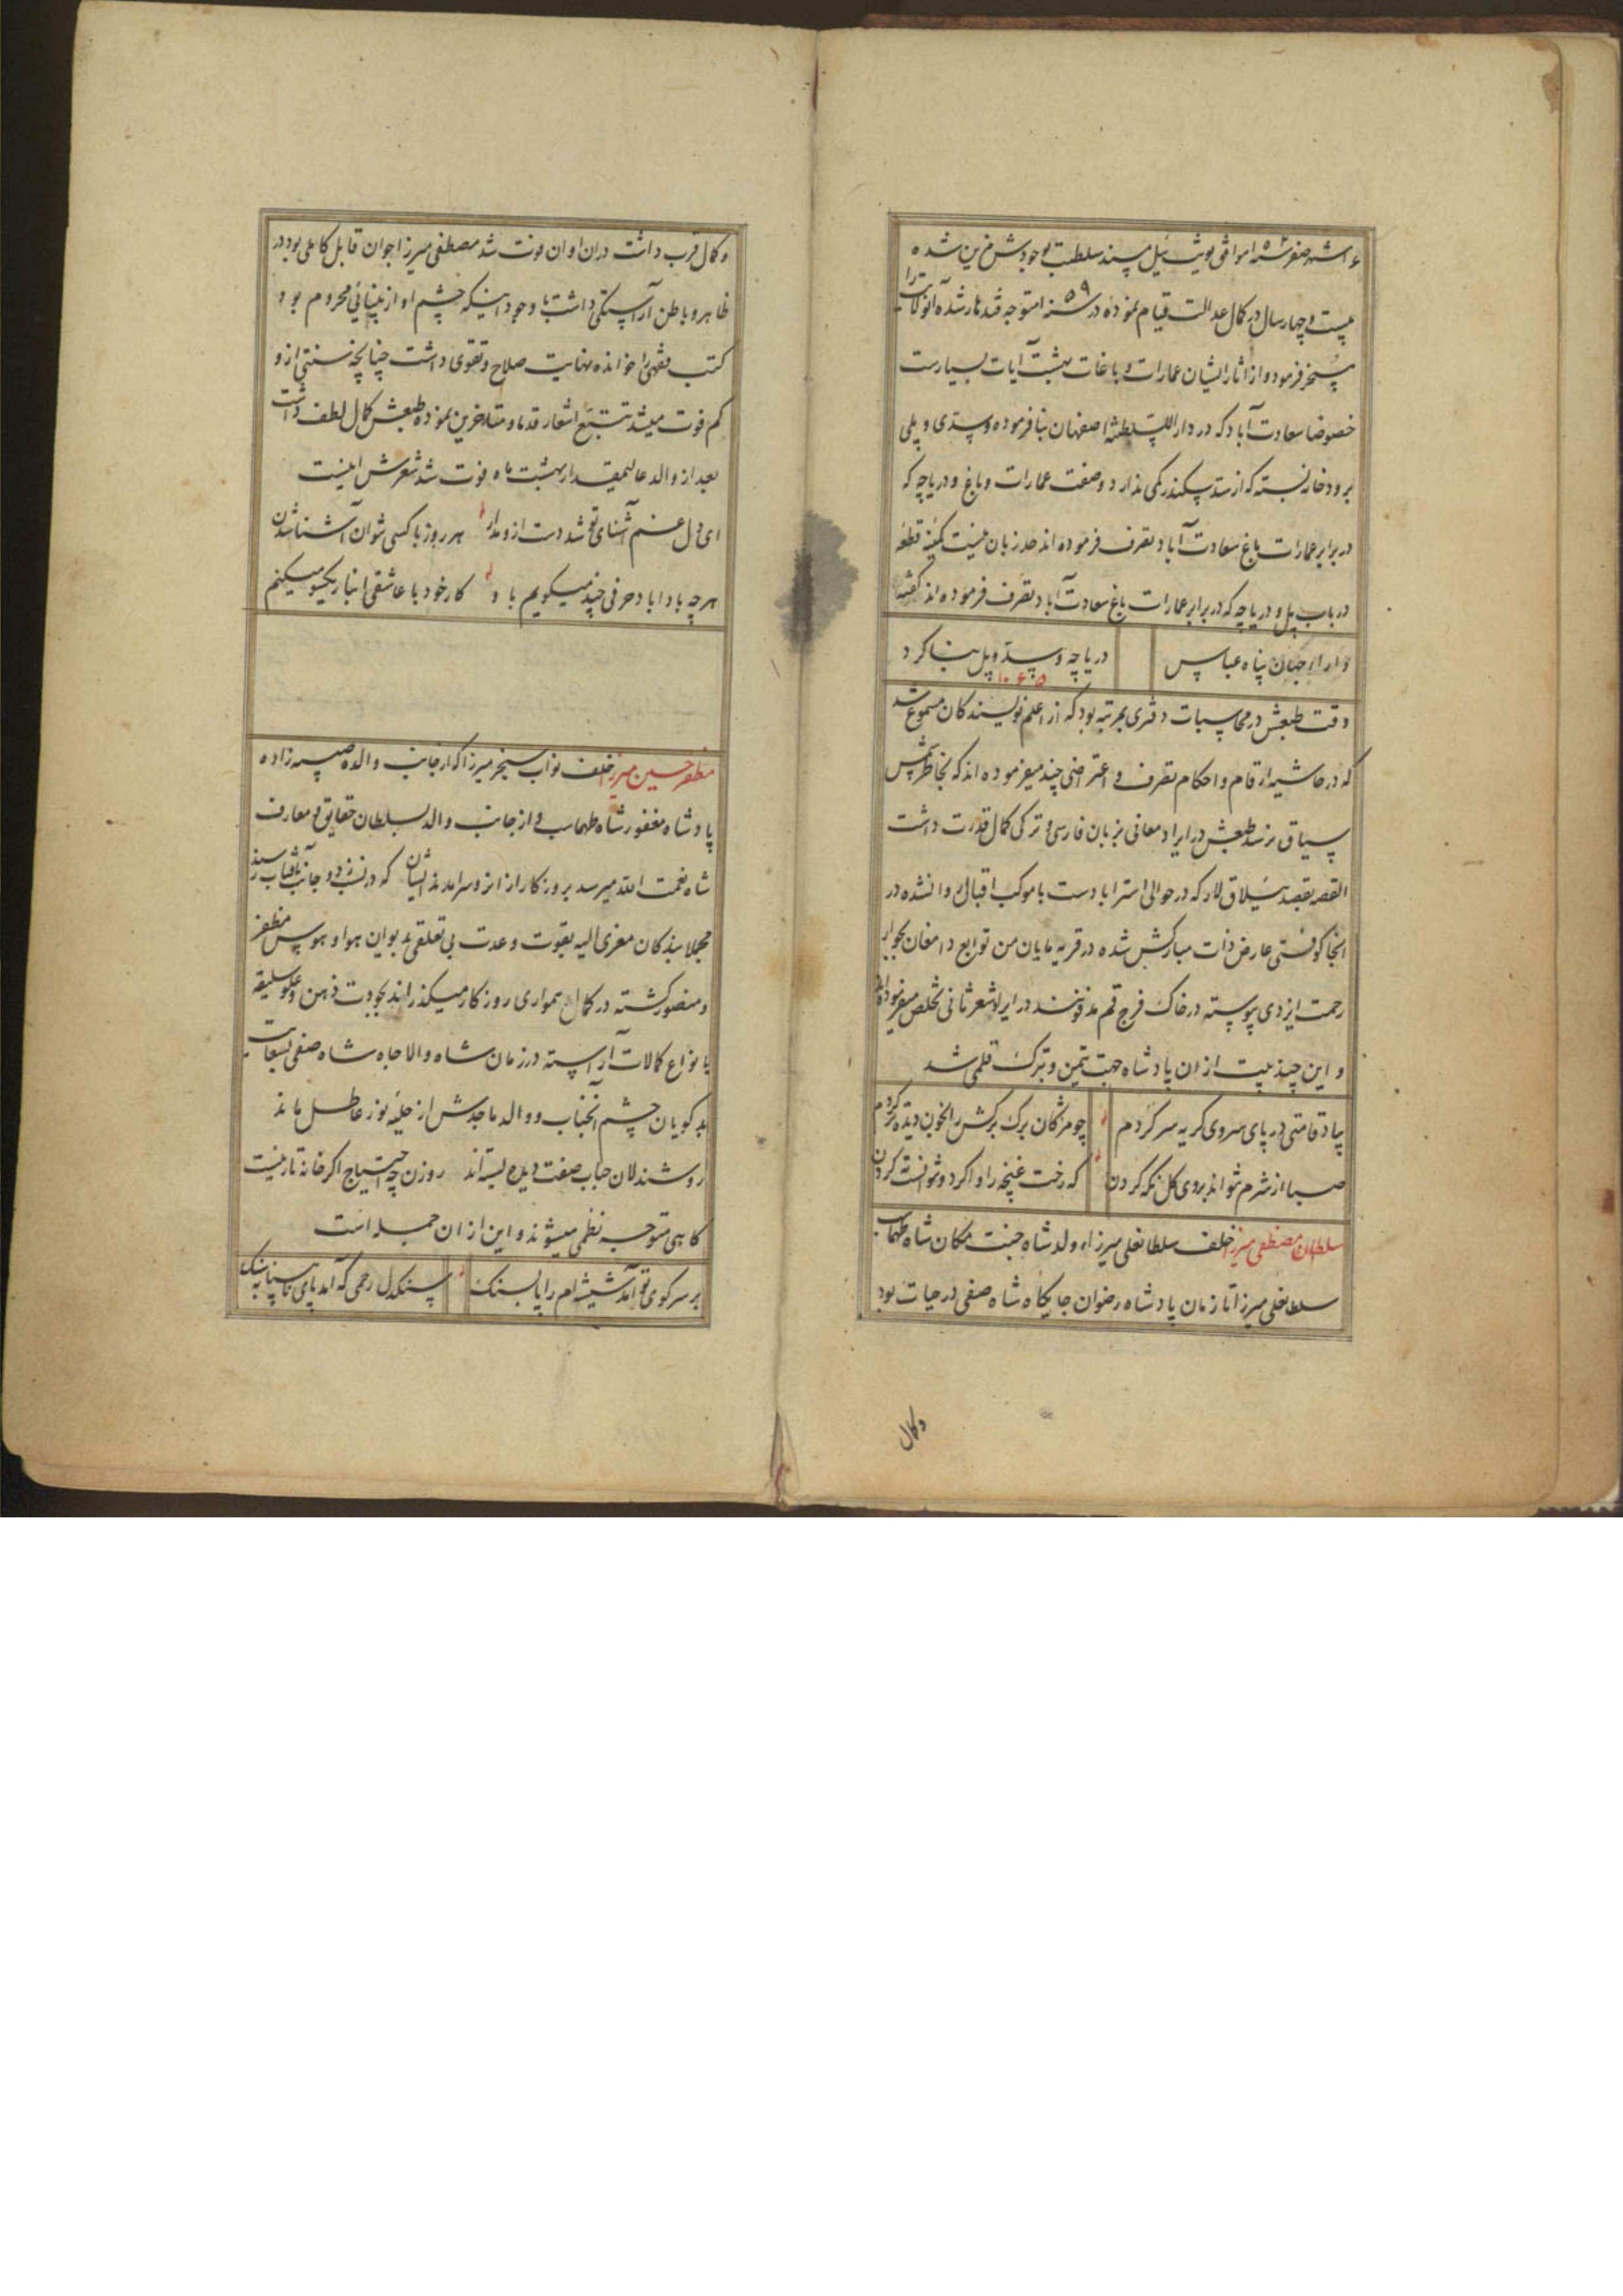 شهر صفر سنه ۱۰۵۲ موافق یونت ئیل مسند سلطنت بوجودش مزین شده
بیست و چهار سال در کمال عدالت قیام نموده در سنه ۱۰۵۹ متوجه قندهار شده آنولایت را
مسخر فرمود و از اثار ایشان عمارات و باغات بهشت آیات بسیارست
خصوصا سعادت آباد که در دار السلطنه اصفهان بنا فرموده و سدی و پلی
برودخانه بسته که از سد سکندر کمی ندارد و صفت عمارات و باغ و دریاچه که
در برابر عمارات باغ سعادت آباد تصرف فرموده اند حد زبان نیست کمینه قطعه
در باب پل و دریاچه که در برابر عمارات باغ سعادت آباد تصرف فرموده اند گفته
دارای جهان پناه عباس دریاچه و سد و پل بنا کرد
۱۰۶۵
دقت طبعش در محاسبات دفتری بمرتبه بود که از اعلم نویسندگان مسموع شد
که در حاشیه ارقام و احکام تصرف و اعتراضی چند میفرموده اند که بخاطر شمس
سیاق نرسد طبعش در ایراد معانی بزبان فارسی و ترکی کمال قدرت داشت
القصه بقصد ییلاق لار که در حوالی استراباد ست با موکب اقبال روانشده در
انجا کوفتی عارض ذات مبارکش شده در قریه مایان من توابع دامغان بجوار
رحمت ایزدی پیوسته در خاک فرج قم مدفونند در ایراد شعر ثانی تخلص میفرموده اند
و این چند بیت از ان پادشاه جهت تیمن و تبرک قلمی شد
بیاد قامتی در پای سروی گریه سر کردم چو مژگان برگ برگش را بخون دیده تر کردم
صبا از شرم نتواند بروی گل نگه کردن که رخت غنچه را وا کرد و نتوانست ته کردن
سلطان مصطفی میرزا خلف سلطانعلی میرزا ولد شاه جنت مکان شاه طهماسب
سلطانعلی میرزا تا زمان پادشاه رضوان جایگاه شاه صفی در حیات بود
وکمال
وکمال قرب داشت دران اوان فوت شد مصطفی میرزا جوان قابل کاملی بود در
ظاهر و باطن آراستگی داشت با وجود اینکه چشم او از بینائی محروم بود
کتب فقهی را خوانده نهایت صلاح و تقوی داشت چنانچه سنتی ازو
کم فوت میشد تتبع اشعار قدما و متاخرین نموده طبعش کمال لطف داشت
بعد از والد عالیمقدار بهشت ماه فوت شد شعرش اینست
ای دل غم آشنای تو شد دست ازو مدار هر روز با کسی نتوان آشنا شدن
هر چه بادا باد حرفی چند میگویم باو کار خود با عاشقی اینبار یکسو میکنم
مظفر حسین میرزا خلف نواب سنجر میرزا که از جانب والده صبیه زاده
پادشاه مغفور شاه طهماسب و از جانب والد بسلطان حقایق و معارف
شاه نعمت الله میرسد بروزگار ازانزو سرامدند ایشان که در نسب دو جانب بآفتاب رسند
مجملا بندگان معزی الیه بقوت وحدت بی تعلقی بدیوان هوا و هوس مظفر
و منصور گشته در کمال همواری روزگار میگذراند بجودت ذهن و علو سلیقه
بانواع کمالات آراسته در زمان شاه والا جاه شاه صفی بسعایت
بدگویان چشم آنجناب و والد ماجدش از حلیه نور عاطل ماند
روشندلان حباب صفت دیده بسته اند روزن چه احتیاج اگر خانه تار نیست
گاهی متوجه نظمی میشوند و این از ان جمله است
بر سر کوی تو آمد شیشه ام را پا بسنگ سنگدل رحمی که آمد پای تا بسنگ